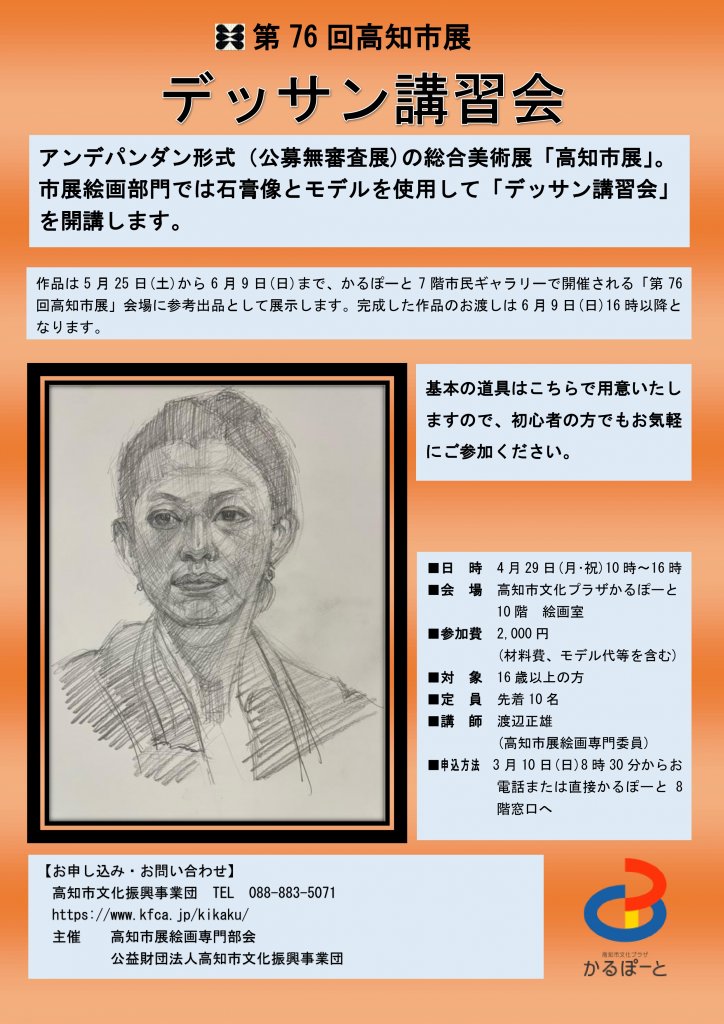 第 76 回高知市展
デッサン講習会
アンデパンダン形式 (公募無審査展)の総合美術展「高知市展」。
市展絵画部門では石膏像とモデルを使用して「デッサン講習会」
を開講します。
作品は 5 月 25 日(土)から 6 月 9 日(日)まで、かるぽーと 7 階市民ギャラリーで開催される「第 76
回高知市展」会場に参考出品として展示します。完成した作品のお渡しは 6 月 9 日(日)16 時以降と
なります。
基本の道具はこちらで用意いたし
ますので、初心者の方でもお気軽
にご参加ください。
■日　時　4 月 29 日(月・祝)10 時～16 時
■会　場　高知市文化プラザかるぽーと
10 階　絵画室
■参加費　2,000 円
(材料費、モデル代等を含む)
■対　象　16 歳以上の方
■定　員　先着 10 名
■講　師　渡辺正雄
(高知市展絵画専門委員)
■申込方法　3 月 10 日(日)8 時 30 分からお
電話または直接かるぽーと 8
階窓口へ
【お申し込み・お問い合わせ】
高知市文化振興事業団　TEL　088-883-5071
https://www.kfca.jp/kikaku/
主催　　高知市展絵画専門部会
公益財団法人高知市文化振興事業団
高知市文化プラザ
かるぽーと